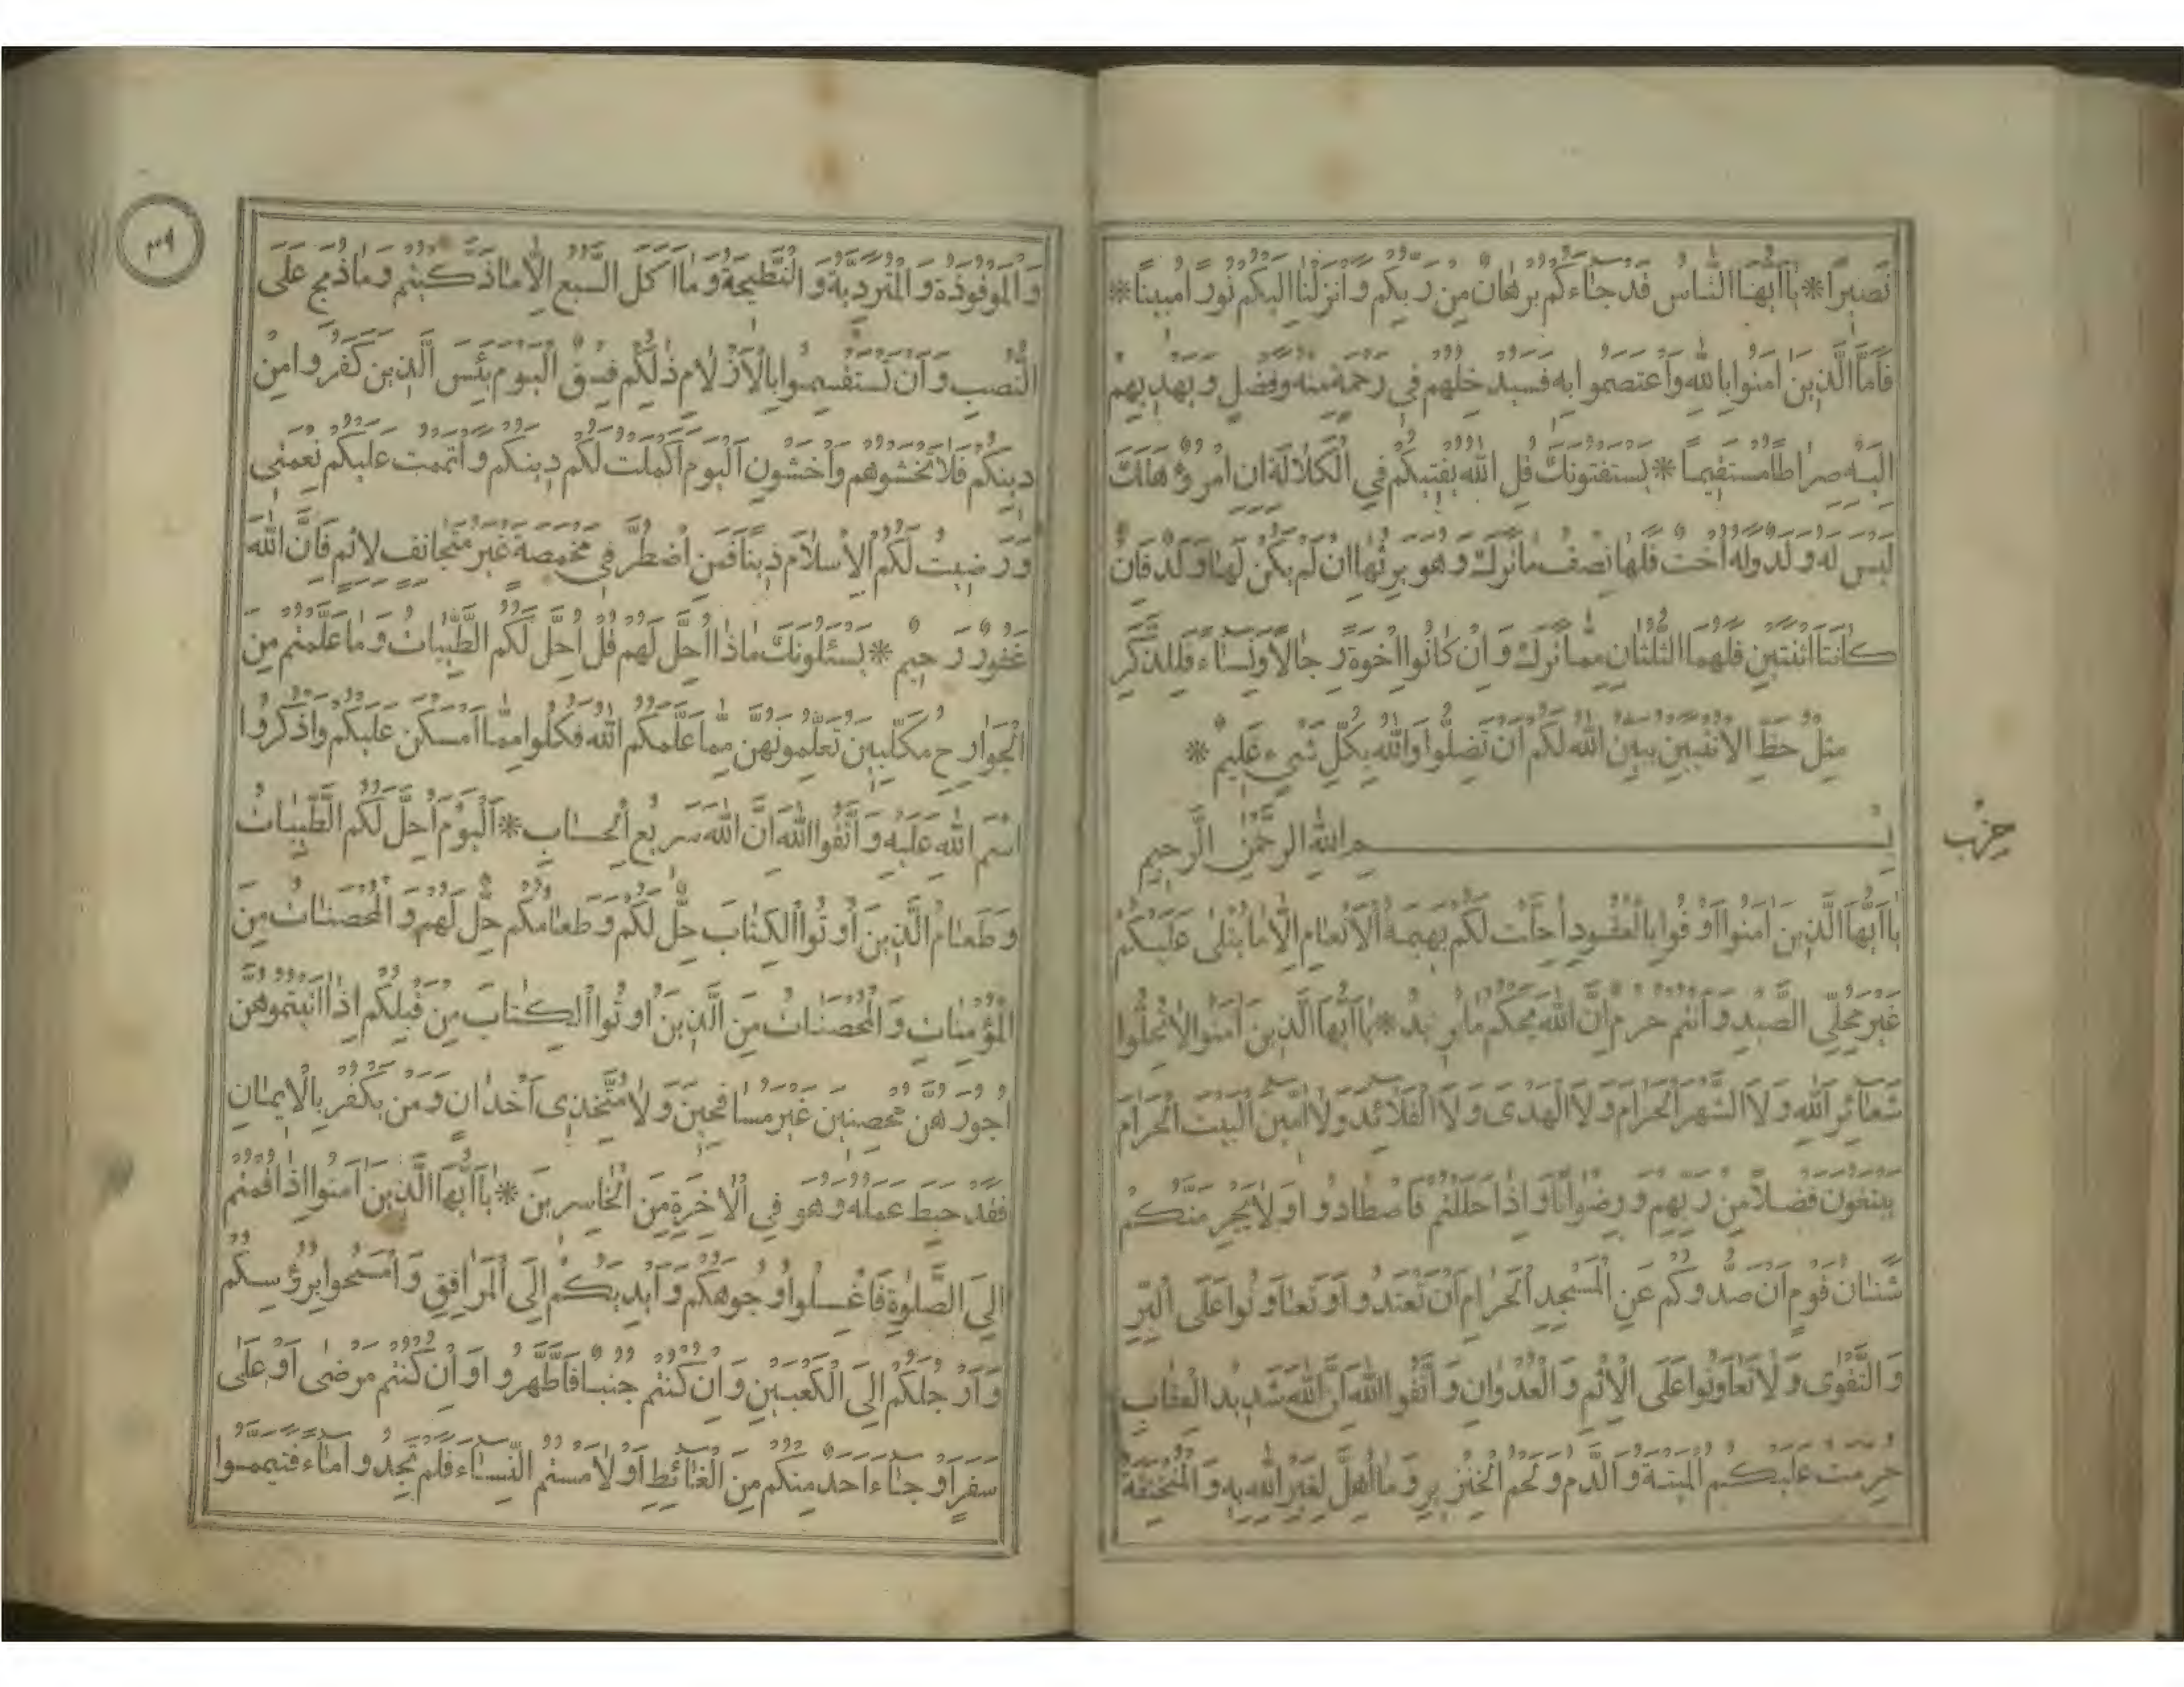 نَصِيرًا * يَا أَيُّهَا النَّاسُ قَدْ جَاءَكُمْ بُرْهَانٌ مِنْ رَبِّكُمْ وَأَنْزَلْنَا إِلَيْكُمْ نُورًا مُبِينًا *
فَأَمَّا الَّذِينَ آمَنُوا بِاللهِ وَاعْتَصَمُوا بِهِ فَسَيُدْخِلُهُمْ فِي رَحْمَةٍ مِنْهُ وَفَضْلٍ وَيَهْدِيهِمْ
إِلَيْهِ صِرَاطًا مُسْتَقِيمًا * يَسْتَفْتُونَكَ قُلِ اللهُ يُفْتِيكُمْ فِي الْكَلَالَةِ إِنِ امْرُؤٌ هَلَكَ
لَيْسَ لَهُ وَلَدٌ وَلَهُ أُخْتٌ فَلَهَا نِصْفُ مَا تَرَكَ وَهُوَ يَرِثُهَا إِنْ لَمْ يَكُنْ لَهَا وَلَدٌ فَإِنْ
كَانَتَا اثْنَتَيْنِ فَلَهُمَا الثُّلُثَانِ مِمَّا تَرَكَ وَإِنْ كَانُوا إِخْوَةً رِجَالًا وَنِسَاءً فَلِلذَّكَرِ
مِثْلُ حَظِّ الْأُنْثَيَيْنِ يُبَيِّنُ اللهُ لَكُمْ أَنْ تَضِلُّوا وَاللهُ بِكُلِّ شَيْءٍ عَلِيمٌ *
بِسْمِ اللهِ الرَّحْمٰنِ الرَّحِيمِ
حزب
يَا أَيُّهَا الَّذِينَ آمَنُوا أَوْفُوا بِالْعُقُودِ أُحِلَّتْ لَكُمْ بَهِيمَةُ الْأَنْعَامِ إِلَّا مَا يُتْلَى عَلَيْكُمْ
غَيْرَ مُحِلِّي الصَّيْدِ وَأَنْتُمْ حُرُمٌ إِنَّ اللهَ يَحْكُمُ مَا يُرِيدُ * يَا أَيُّهَا الَّذِينَ آمَنُوا لَا تُحِلُّوا
شَعَائِرَ اللهِ وَلَا الشَّهْرَ الْحَرَامَ وَلَا الْهَدْىَ وَلَا الْقَلَائِدَ وَلَا آمِّينَ الْبَيْتَ الْحَرَامَ
يَبْتَغُونَ فَضْلًا مِنْ رَبِّهِمْ وَرِضْوَانًا وَإِذَا حَلَلْتُمْ فَاصْطَادُوا وَلَا يَجْرِمَنَّكُمْ
شَنَئَانُ قَوْمٍ أَنْ صَدُّوكُمْ عَنِ الْمَسْجِدِ الْحَرَامِ أَنْ تَعْتَدُوا وَتَعَاوَنُوا عَلَى الْبِرِّ
وَالتَّقْوٰى وَلَا تَعَاوَنُوا عَلَى الْإِثْمِ وَالْعُدْوَانِ وَاتَّقُوا اللهَ إِنَّ اللهَ شَدِيدُ الْعِقَابِ
حُرِّمَتْ عَلَيْكُمُ الْمَيْتَةُ وَالدَّمُ وَلَحْمُ الْخِنْزِيرِ وَمَا أُهِلَّ لِغَيْرِ اللهِ بِهِ وَالْمُنْخَنِقَةُ
وَالْمَوْقُوذَةُ وَالْمُتَرَدِّيَةُ وَالنَّطِيحَةُ وَمَا أَكَلَ السَّبُعُ إِلَّا مَا ذَكَّيْتُمْ وَمَا ذُبِحَ عَلَى
النُّصُبِ وَأَنْ تَسْتَقْسِمُوا بِالْأَزْلَامِ ذٰلِكُمْ فِسْقٌ الْيَوْمَ يَئِسَ الَّذِينَ كَفَرُوا مِنْ
دِينِكُمْ فَلَا تَخْشَوْهُمْ وَاخْشَوْنِ الْيَوْمَ أَكْمَلْتُ لَكُمْ دِينَكُمْ وَأَتْمَمْتُ عَلَيْكُمْ نِعْمَتِي
وَرَضِيتُ لَكُمُ الْإِسْلَامَ دِينًا فَمَنِ اضْطُرَّ فِي مَخْمَصَةٍ غَيْرَ مُتَجَانِفٍ لِإِثْمٍ فَإِنَّ اللهَ
غَفُورٌ رَحِيمٌ * يَسْئَلُونَكَ مَاذَا أُحِلَّ لَهُمْ قُلْ أُحِلَّ لَكُمُ الطَّيِّبَاتُ وَمَا عَلَّمْتُمْ مِنَ
الْجَوَارِحِ مُكَلِّبِينَ تُعَلِّمُونَهُنَّ مِمَّا عَلَّمَكُمُ اللهُ فَكُلُوا مِمَّا أَمْسَكْنَ عَلَيْكُمْ وَاذْكُرُوا
اسْمَ اللهِ عَلَيْهِ وَاتَّقُوا اللهَ إِنَّ اللهَ سَرِيعُ الْحِسَابِ * الْيَوْمَ أُحِلَّ لَكُمُ الطَّيِّبَاتُ
وَطَعَامُ الَّذِينَ أُوتُوا الْكِتَابَ حِلٌّ لَكُمْ وَطَعَامُكُمْ حِلٌّ لَهُمْ وَالْمُحْصَنَاتُ مِنَ
الْمُؤْمِنَاتِ وَالْمُحْصَنَاتُ مِنَ الَّذِينَ أُوتُوا الْكِتَابَ مِنْ قَبْلِكُمْ إِذَا آتَيْتُمُوهُنَّ
أُجُورَهُنَّ مُحْصِنِينَ غَيْرَ مُسَافِحِينَ وَلَا مُتَّخِذِى أَخْدَانٍ وَمَنْ يَكْفُرْ بِالْإِيمَانِ
فَقَدْ حَبِطَ عَمَلُهُ وَهُوَ فِي الْآخِرَةِ مِنَ الْخَاسِرِينَ * يَا أَيُّهَا الَّذِينَ آمَنُوا إِذَا قُمْتُمْ
إِلَى الصَّلٰوةِ فَاغْسِلُوا وُجُوهَكُمْ وَأَيْدِيَكُمْ إِلَى الْمَرَافِقِ وَامْسَحُوا بِرُؤُسِكُمْ
وَأَرْجُلَكُمْ إِلَى الْكَعْبَيْنِ وَإِنْ كُنْتُمْ جُنُبًا فَاطَّهَّرُوا وَإِنْ كُنْتُمْ مَرْضٰى أَوْ عَلٰى
سَفَرٍ أَوْ جَاءَ أَحَدٌ مِنْكُمْ مِنَ الْغَائِطِ أَوْ لَامَسْتُمُ النِّسَاءَ فَلَمْ تَجِدُوا مَاءً فَتَيَمَّمُوا